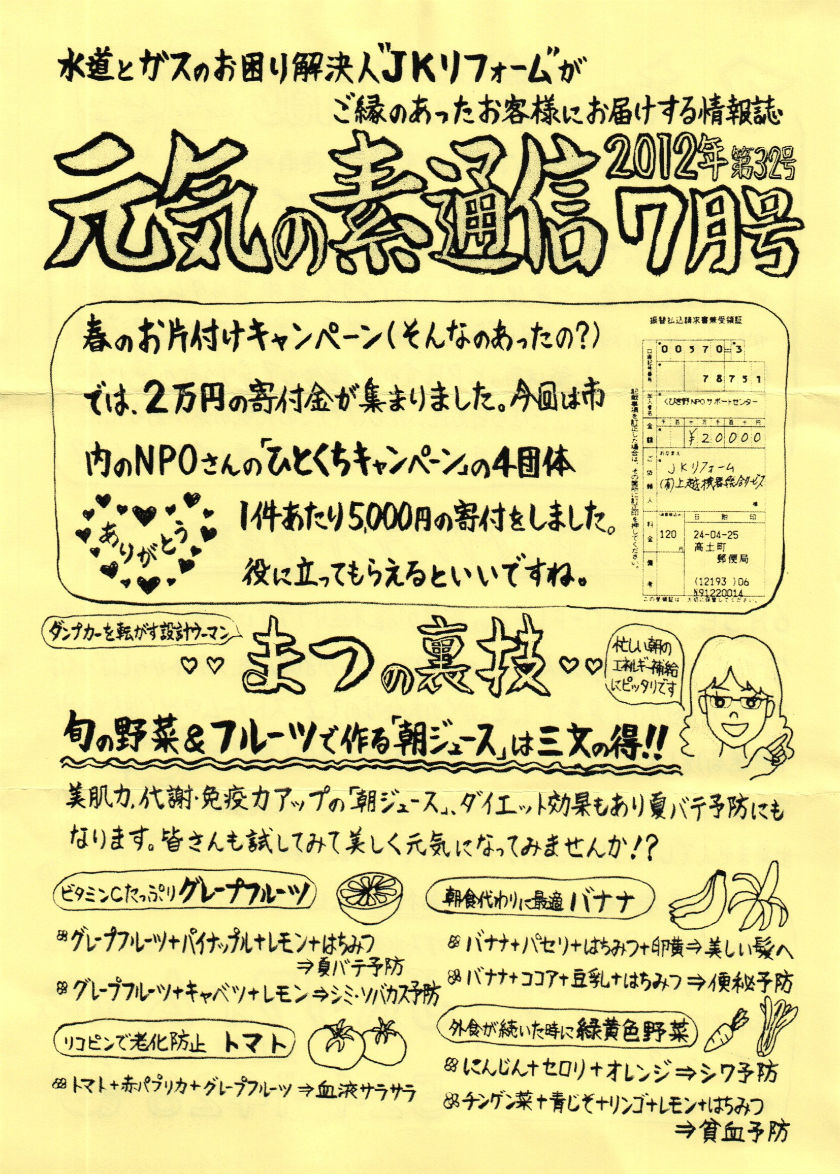 水道とガスのお困り解決人"JKリフォーム"が
ご縁のあったお客様にお届けする情報誌
元気の素通信 2012年 第32号 7月号
春のお片付けキャンペーン(そんなのあったの?)
では、2万円の寄付金が集まりました。今回は市
内のNPOさんの「ひとくちキャンペーン」の4団体
1件あたり5,000円の寄付をしました。
役に立ってもらえるといいですね。
ありがとう
振替払込請求書兼受領証
00570 3
78751
くびき野NPOサポートセンター
¥20000
JKリフォーム
料金 120
日附印
24-04-25
高土町
郵便局
備考
(12193)06
N91220014
ダンプカーを転がす設計ウーマン
まつの裏技
忙しい朝の
エネルギー補給
にピッタリです
旬の野菜&フルーツで作る「朝ジュース」は三文の得!!
美肌力、代謝・免疫力アップの「朝ジュース」、ダイエット効果もあり夏バテ予防にも
なります。皆さんも試してみて美しく元気になってみませんか!?
ビタミンCたっぷりグレープフルーツ
グレープフルーツ+パイナップル+レモン+はちみつ
⇒夏バテ予防
グレープフルーツ+キャベツ+レモン⇒シミ・ソバカス予防
リコピンで老化防止 トマト
トマト+赤パプリカ+グレープフルーツ⇒血液サラサラ
朝食代わりに最適 バナナ
バナナ+パセリ+はちみつ+卵黄⇒美しい髪へ
バナナ+ココア+豆乳+はちみつ⇒便秘予防
外食が続いた時に緑黄色野菜
にんじん+セロリ+オレンジ⇒シワ予防
チンゲン菜+青じそ+リンゴ+レモン+はちみつ
⇒貧血予防